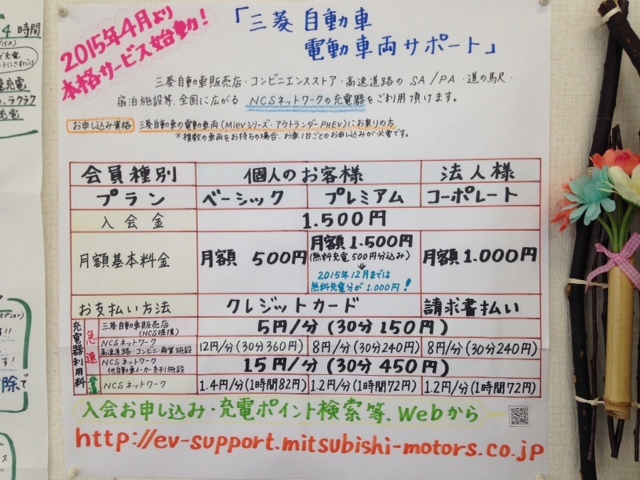 4時間
2015年4月より
本格サービス始動!
「三菱自動車
電動車両サポート」
三菱自動車販売店・コンビニエンスストア・高速道路のSA/PA・道の駅・
宿泊施設等、全国に広がるNCSネットワークの充電器をご利用頂けます。
お申し込み資格 三菱自動車の電動車両(MiEVシリーズ・アウトランダーPHEV)にお乗りの方
*複数の車両をお持ちの場合、お車1台ごとのお申し込みが必要です。
会員種別 個人のお客様 法人様
プラン ベーシック プレミアム コーポレート
入会金 1.500円
月額基本料金 月額 500円 月額1.500円 月額1.000円
(無料充電500円分込み)
2015年12月までは
無料充電分が1.000円!
お支払い方法 クレジットカード 請求書払い
充電器利用料 急速 三菱自動車販売店 5円/分(30分150円)
(NCS提携)
NCSネットワーク 12円/分(30分360円) 8円/分(30分240円) 8円/分(30分240円)
高速道路・コンビニ・商業施設
NCSネットワーク 15円/分(30分450円)
他自動車メーカー系列施設
普通 NCSネットワーク 1.4円/分(1時間82円) 1.2円/分(1時間72円) 1.2円/分(1時間72円)
入会お申し込み・充電ポイント検索等、Webから
http://ev-support.mitsubishi-motors.co.jp